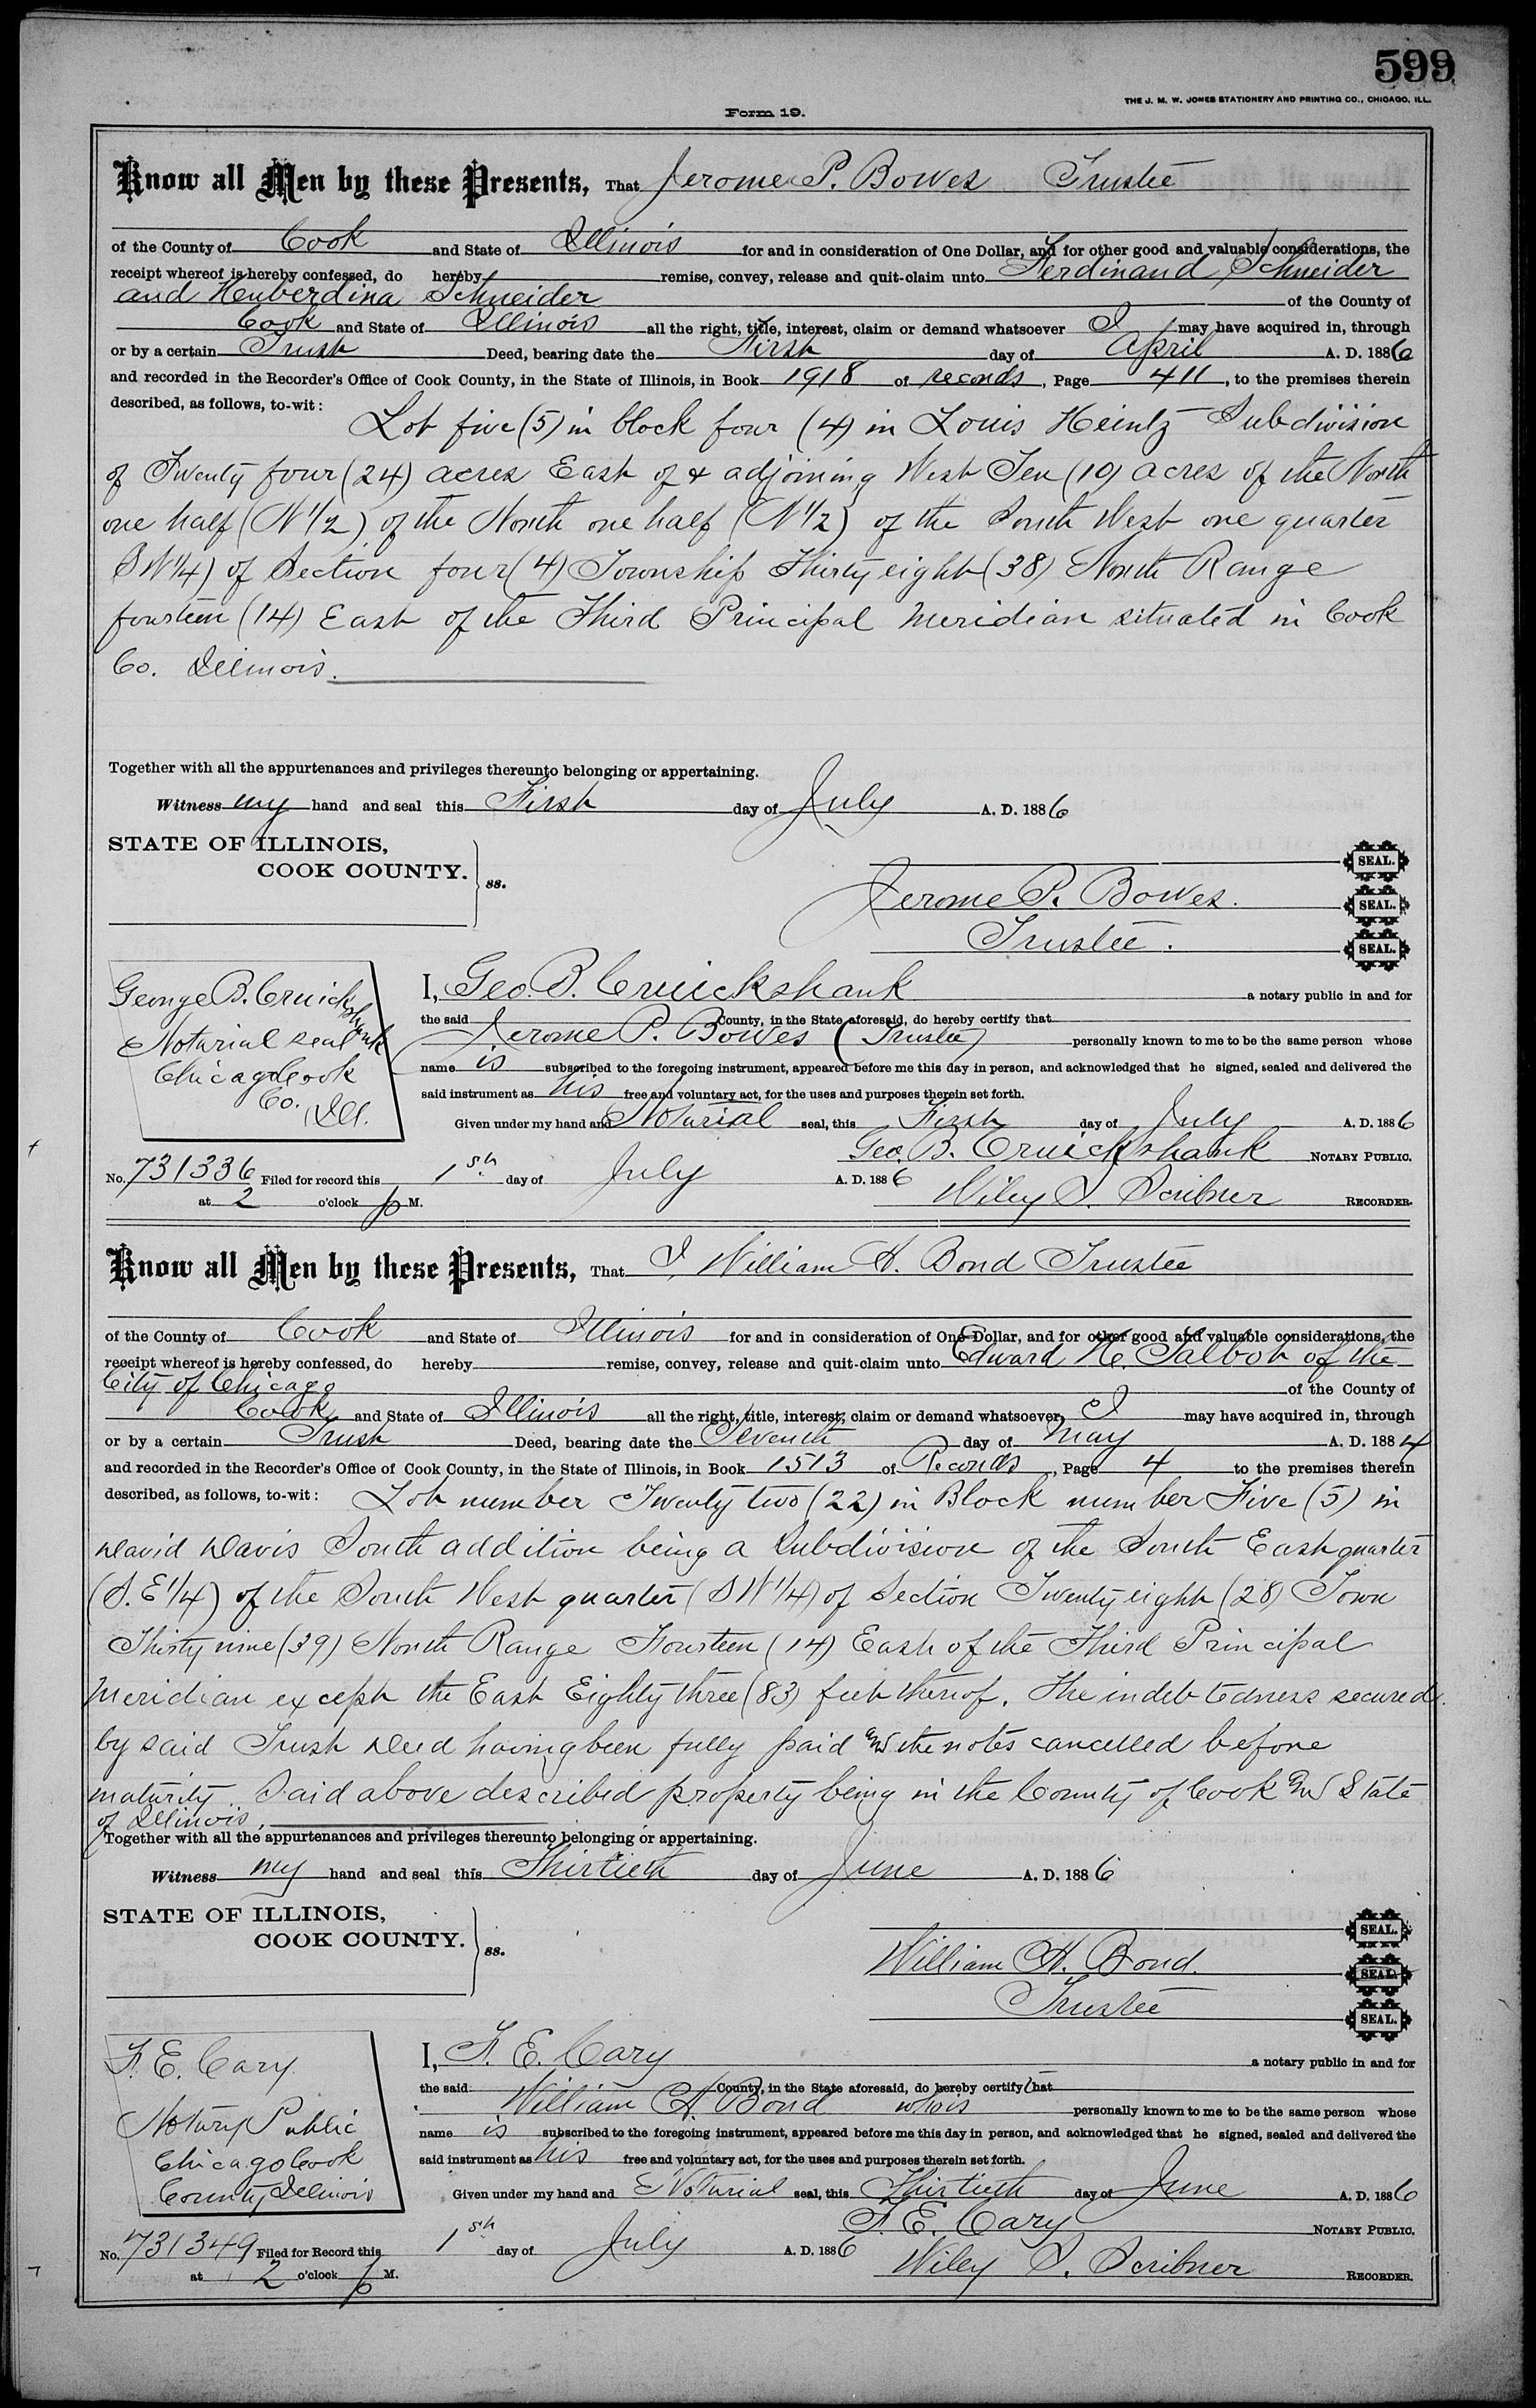 599
THE J. M. W. JONES STATIONERY AND PRINTING CO., CHICAGO, ILL.
Form 19.
Know all Men by these Presents, That Jerome P. Bowes Trustee
of the County of Cook and State of Illinois for and in consideration of One Dollar, and for other good and valuable considerations, the
receipt whereof is hereby confessed, do hereby remise, convey, release and quit-claim unto Ferdinand Schneider
and Henberdina Schneider of the County of
Cook and State of Illinois all the right, title, interest, claim or demand whatsoever I may have acquired in, through
or by a certain Trust Deed, bearing date the First day of April A. D. 1886
and recorded in the Recorder's Office of Cook County, in the State of Illinois, in Book 1918 of records, Page 411, to the premises therein
described, as follows, to-wit: Lot five (5) in block four (4) in Louis Heintz Subdivision
of Twenty four (24) acres East of & adjoining West Ten (10) acres of the North
one half (N 1/2) of the North one half (N 1/2) of the South West one quarter
S W 1/4) of Section four (4) Township Thirty eight (38) North Range
fourteen (14) East of the Third Principal Meridian situated in Cook
Co. Illinois.
Together with all the appurtenances and privileges thereunto belonging or appertaining.
Witness my hand and seal this First day of July A. D. 1886
STATE OF ILLINOIS,
COOK COUNTY. ss.
SEAL.
Jerome P. Bowes. SEAL.
Trustee. SEAL.
George B. Cruickshank
Notarial seal
Chicago Cook
Co. Ill.
I, Geo. B. Cruickshank a notary public in and for
the said County, in the State aforesaid, do hereby certify that
Jerome P. Bowes (Trustee) personally known to me to be the same person whose
name is subscribed to the foregoing instrument, appeared before me this day in person, and acknowledged that he signed, sealed and delivered the
said instrument as his free and voluntary act, for the uses and purposes therein set forth.
Given under my hand and Notarial seal, this First day of July A. D. 1886
Geo. B. Cruickshank NOTARY PUBLIC.
No. 731336 Filed for record this 1st day of July A. D. 1886
at 2 o'clock P M. Wiley S. Scribner RECORDER.
Know all Men by these Presents, That I, William A. Bond Trustee
of the County of Cook and State of Illinois for and in consideration of One Dollar, and for other good and valuable considerations, the
receipt whereof is hereby confessed, do hereby remise, convey, release and quit-claim unto Edward H. Talbot of the
City of Chicago of the County of
Cook and State of Illinois all the right, title, interest, claim or demand whatsoever, I may have acquired in, through
or by a certain Trust Deed, bearing date the Seventh day of May A. D. 1884
and recorded in the Recorder's Office of Cook County, in the State of Illinois, in Book 1513 of Records, Page 4 to the premises therein
described, as follows, to-wit: Lot number Twenty two (22) in Block number Five (5) in
David Davis South addition being a Subdivision of the South East quarter
(S. E 1/4) of the South West quarter (S W 1/4) of Section Twenty eight (28) Town
Thirty nine (39) North Range Fourteen (14) East of the Third Principal
Meridian except the East Eighty three (83) feet thereof. The indebtedness secured
by said Trust Deed having been fully paid and the notes cancelled before
maturity. Said above described property being in the County of Cook and State
of Illinois.
Together with all the appurtenances and privileges thereunto belonging or appertaining.
Witness my hand and seal this Thirtieth day of June A. D. 1886
STATE OF ILLINOIS,
COOK COUNTY. ss.
SEAL.
William A. Bond. SEAL.
Trustee SEAL.
F. E. Cary
Notary Public
Chicago Cook
County Illinois
I, F. E. Cary a notary public in and for
the said County, in the State aforesaid, do hereby certify that
William A. Bond who is personally known to me to be the same person whose
name is subscribed to the foregoing instrument, appeared before me this day in person, and acknowledged that he signed, sealed and delivered the
said instrument as his free and voluntary act, for the uses and purposes therein set forth.
Given under my hand and Notarial seal, this Thirtieth day of June A. D. 1886
F. E. Cary NOTARY PUBLIC.
No. 731349 Filed for Record this 1st day of July A. D. 1886
at 2 o'clock P M. Wiley S. Scribner RECORDER.